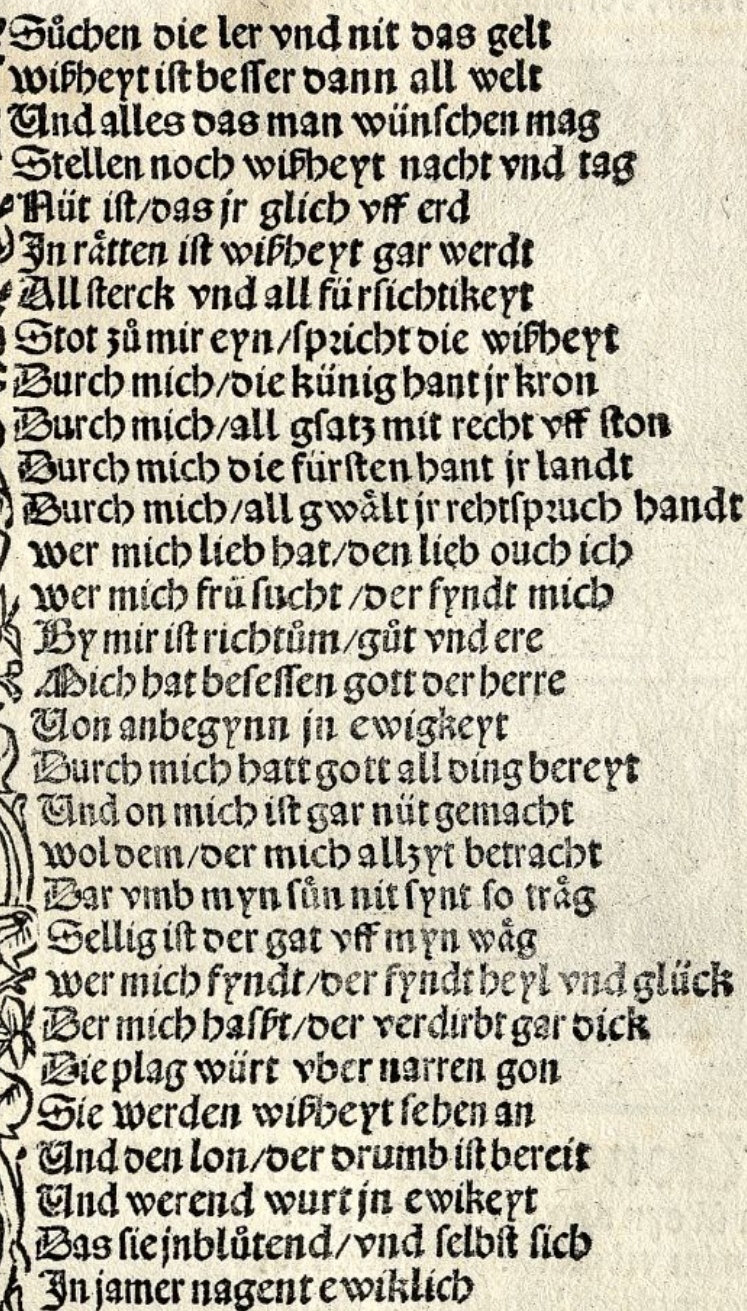 Suͦchen die ler vnd nit das gelt
wißheyt ist besser dann all welt
Und alles das man wünschen mag
Stellen noch wißheyt nacht vnd tag
Nüt ist/das jr glich vff erd
In raͤtten ist wißheyt gar werdt
All sterck vnd all fürsichtikeyt
Stot zuͦ mir eyn/spricht die wißheyt
Durch mich/die künig hant jr kron
Durch mich/all gsatz mit recht vff ston
Durch mich die fürsten hant jr landt
Durch mich/all gwaͤlt jr rehtspruch handt
wer mich lieb hat/den lieb ouch ich
wer mich fruͤ sucht/der fyndt mich
By mir ist richtuͦm/guͦt vnd ere
Mich hat besessen gott der herre
Von anbegynn jn ewigkeyt
Durch mich hatt gott all ding bereyt
Und on mich ist gar nüt gemacht
wol dem/der mich allzyt betracht
Dar vmb myn suͤn nit synt so traͤg
Sellig ist der gat vff myn waͤg
wer mich fyndt/der fyndt heyl vnd glück
Der mich haßt/der verdirbt gar dick
Die plag würt vber narren gon
Sie werden wißheyt sehen an
Und den lon/der drumb ist bereit
Und werend wurt jn ewikeyt
Das sie jnbluͦtend/vnd selbst sich
In jamer nagent ewiklich